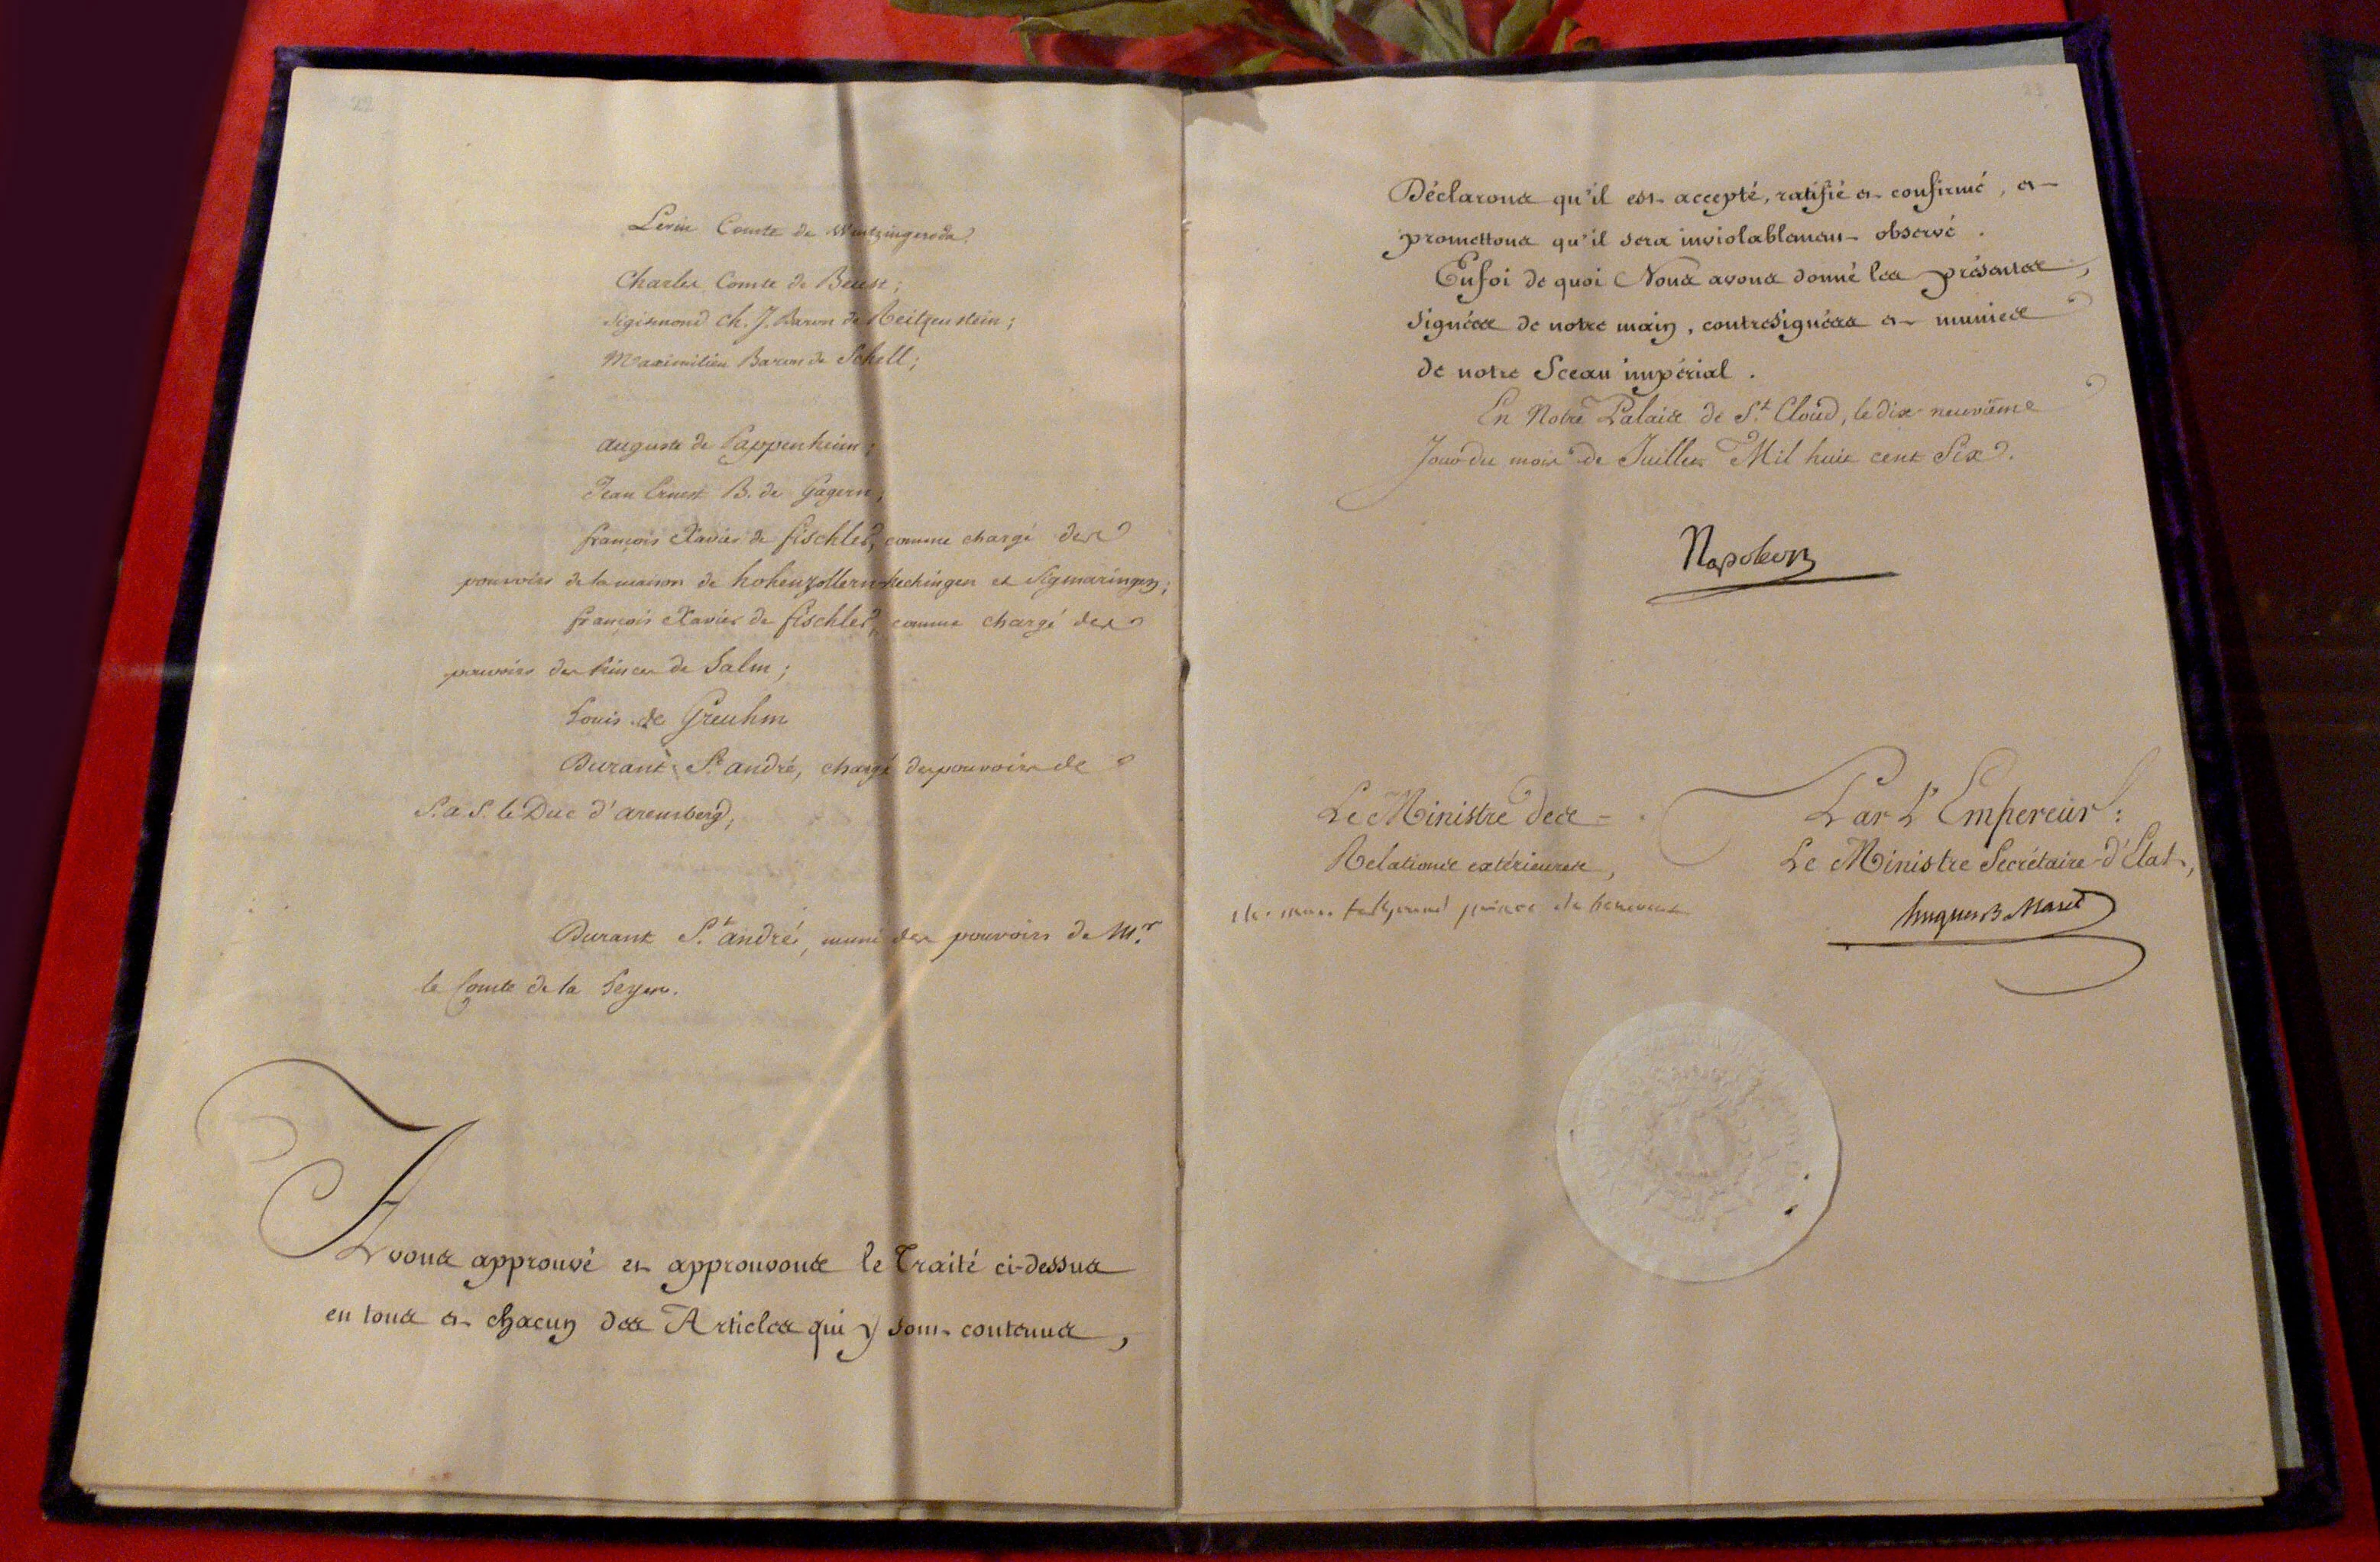 22
Levin Comte de Wintzingeroda;
Charles Comte de Beust;
Sigismond Ch. J. Baron de Reitzenstein;
Maximilien Baron de Schell;
auguste de Pappenheim;
Jean Ernest B. de Gagern;
françois Xavier de fischler, comme chargé des
pouvoirs de la maison de hohenzollern hechingen et Sigmaringen;
françois Xavier de fischler, comme chargé des
pouvoirs des Princes de Salm;
Louis de Greuhm
Durant St. andré, chargé des pouvoirs de
S. a. S. le Duc d'aremberg;
Durant St. andré, muni des pouvoirs de Mr.
le Comte de la Leyen.
Avons approuvé et approuvons le Traité ci-dessus
en tous et chacun des Articles qui y sont contenus,
Déclarons qu'il est accepté, ratifié et confirmé, et
promettons qu'il sera inviolablement observé.
Enfoi de quoi Nous avons donné les présentes,
signées de notre main, contresignées et munies
de notre Sceau impérial.
En Notre Palais de St. Cloud, le dix-neuvième
Jour du mois de Juillet Mil huit cent Six.
Napoleon
Le Ministre des
Relations extérieures,
ch. mau. talleyrand prince de benevent
Par L'Empereur:
Le Ministre Secrétaire d'Etat,
hugues B. Maret